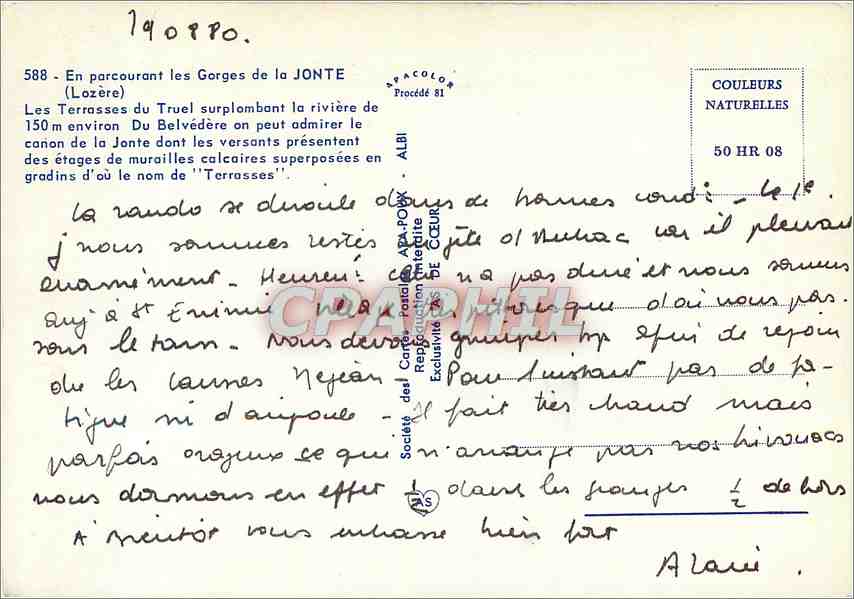 190880.
588 - En parcourant les Gorges de la JONTE
(Lozère)
Les Terrasses du Truel surplombant la rivière de
150 m environ Du Belvédère on peut admirer le
cañon de la Jonte dont les versants présentent
des étages de murailles calcaires superposées en
gradins d'où le nom de "Terrasses".
APACOLOR
Procédé 81
COULEURS
NATURELLES
50 HR 08
Société des Cartes Postales APA-POUX - ALBI
Reproduction Interdite
Exclusivité AS DE CŒUR
AS
CPAPHIL
La rando se déroule dans de bonnes condi: - le 1e
j nous sommes restés au gîte d' car il pleuvait
énormément - Heureu: cela n'a pas duré et nous sommes
auj à St Enimie village très pittoresque d'où nous pas.
sous le tarn - Nous devons grimper hp afin de rejoin
dre les causses Mejean - Pour l'instant pas de fa-
tigue ni d'ampoule - Il fait très chaud mais
parfois orageux ce qui n'arrange pas nos bivouacs
nous dormons en effet 1/2 dans les granges 1/2 dehors
A Bientôt vous embrasse bien fort
Alain.